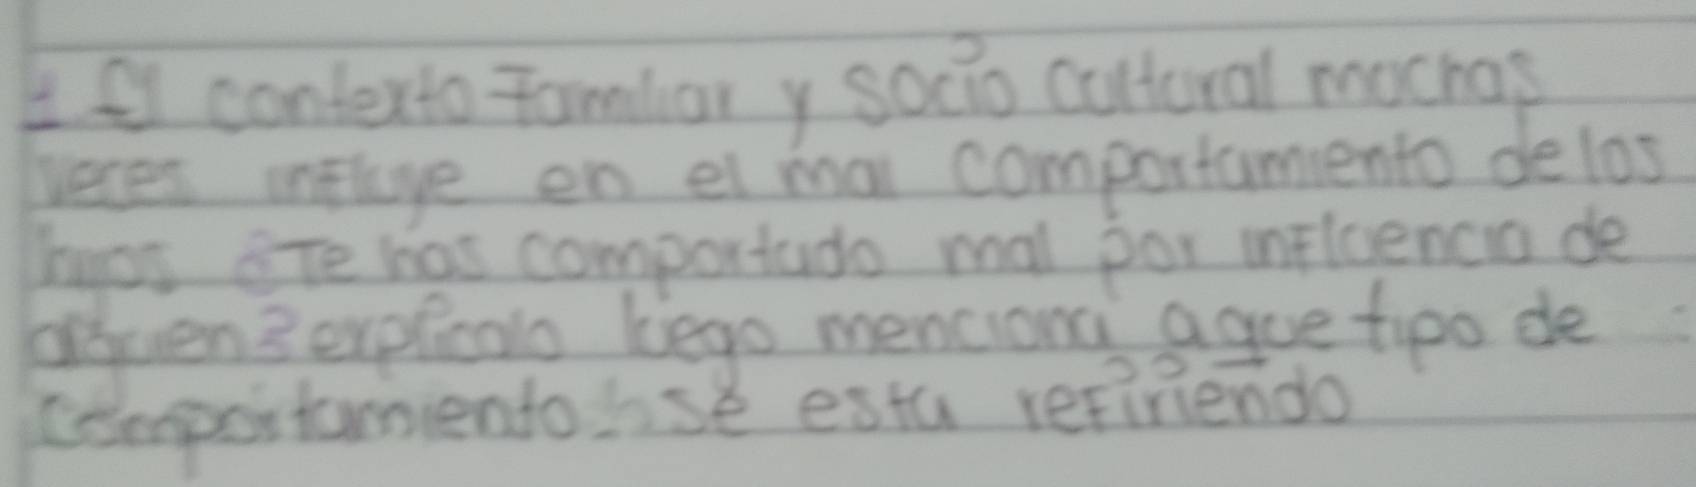 1 El contexto Familiar y socio cultural muchas
veces influye en el mal comportamiento de los
hijos ¿Te has comportado mal por influencia de
alguien? explicalo luego menciona a que tipo de
comportamiento se esta refiriendo